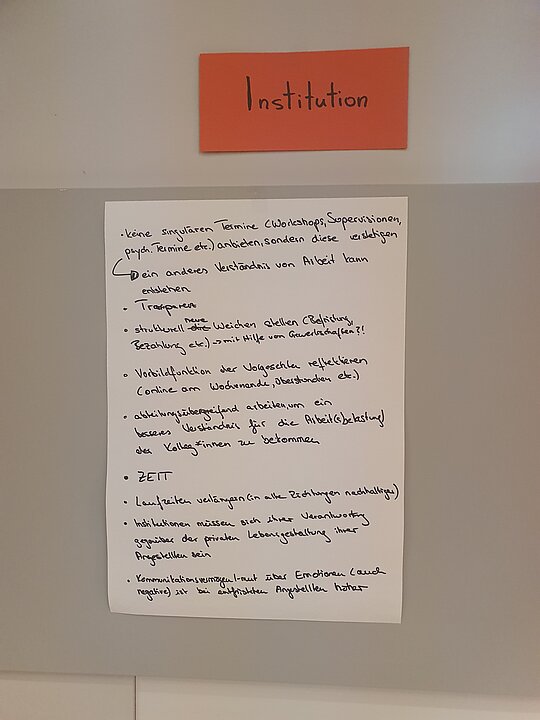 Institution
· keine singulären Termine (Workshops, Supervisionen,
psych. Termine etc.) anbieten, sondern diese verstetigen
ein anderes Verständnis von Arbeit kann
entstehen
• Transparenz
• strukturell neue Weichen stellen (Befristung,
Bezahlung etc.) → mit Hilfe von Gewerkschaften?!
• Vorbildfunktion der Vorgesetzten reflektieren
(online am Wochenende, Überstunden etc.)
• abteilungsübergreifend arbeiten, um ein
besseres Verständnis für die Arbeit(sbelastung)
der Kolleg*innen zu bekommen
• ZEIT
• Laufzeiten verlängern (in alle Richtungen nachhaltiger)
• Institutionen müssen sich ihrer Verantwortung
gegenüber der privaten Lebensgestaltung ihrer
Angestellten sein
• Kommunikationsvermögen/-mut über Emotionen (auch
negative) ist bei entfristeten Angestellten höher